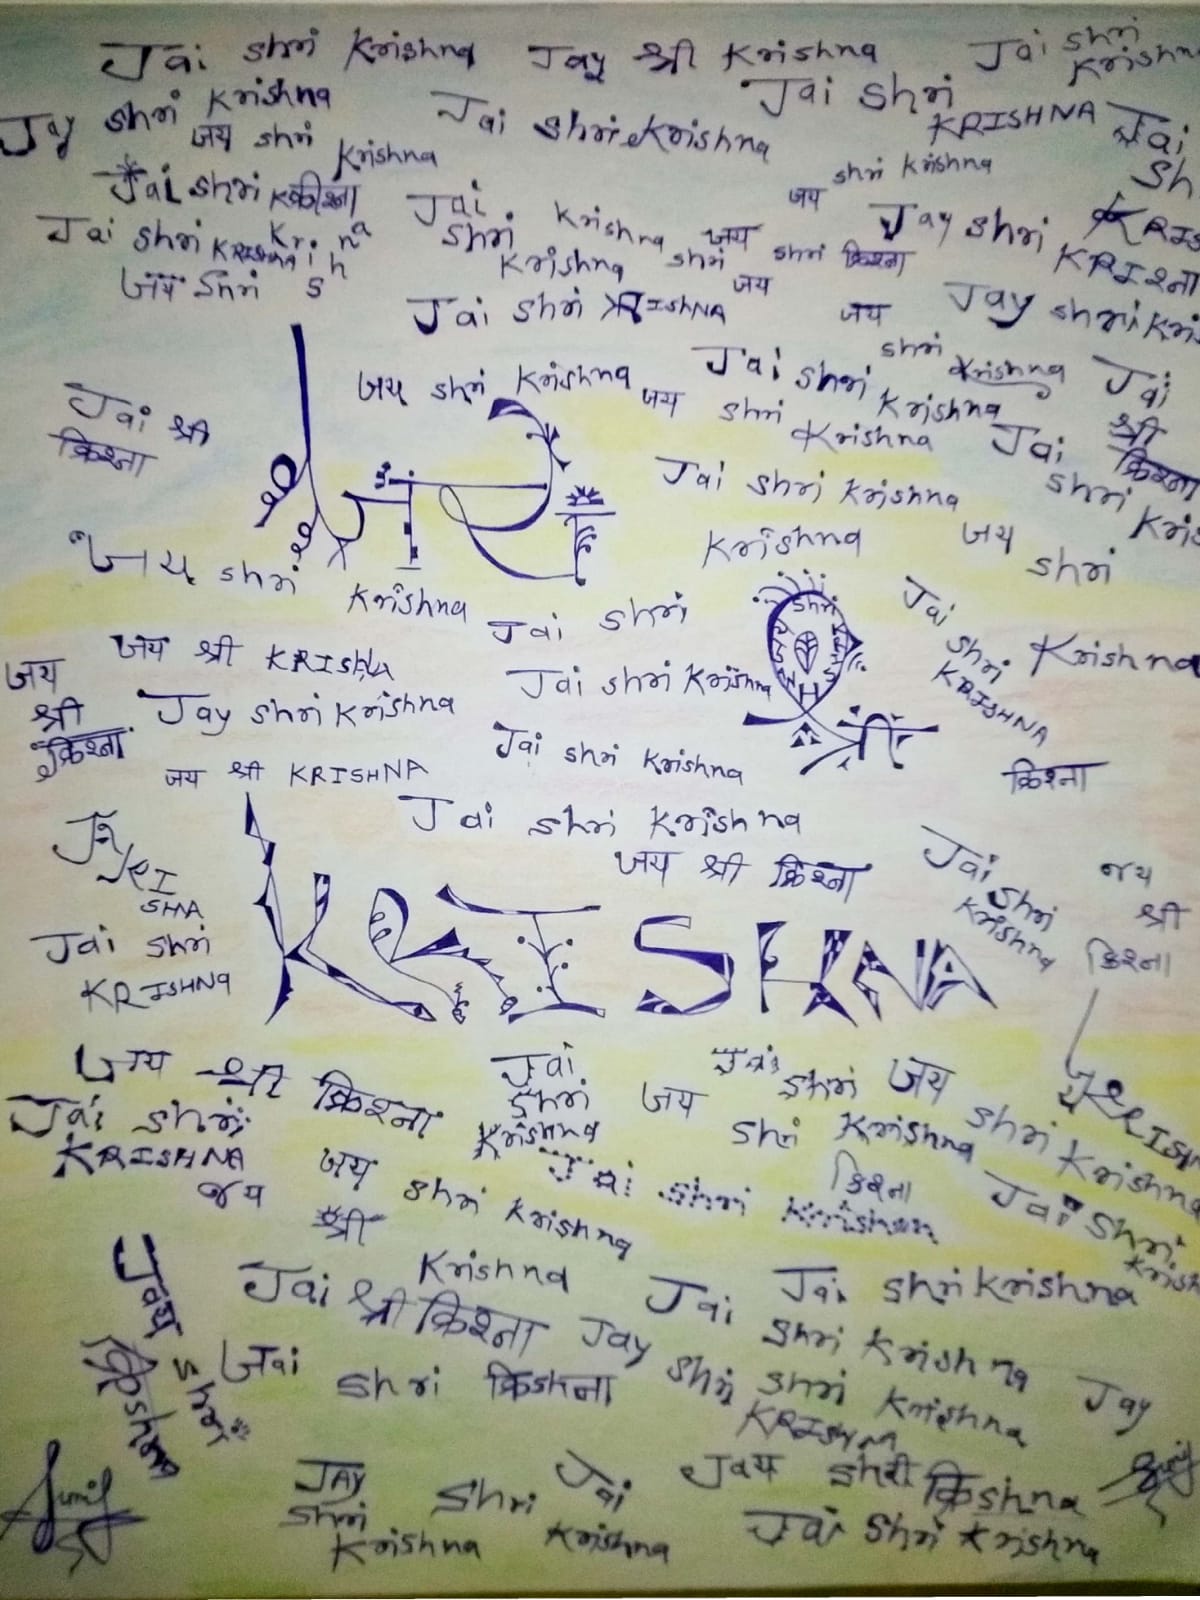 Jai Shri Krishna Jay श्री Krishna Jai Shri Krishna
Jay Shri Krishna Jai Shri Krishna Jai Shri KRISHNA Jai
जय Shri Krishna Shri Krishna Sh
Jai Shri जय KRIS
Jai Shri KRISHNA Jai Shri Krishna जय Jay Shri KRIश्ना
Krishna Shri Shri क्रिश्ना
जय Shri Krishna
Jai Shri KRISHNA जय जय Jay Shri Kris
Shri Krishna
जय Shri Krishna जय Shri Krishna Jai Shri Krishna Jai श्री क्रिश्ना
Jai श्री क्रिश्ना
Jai Shri Krishna Jai Shri Kris
जय Shri Krishna Krishna जय Shri
Jai Shri Jai Shri KRISHNA Krishna
Shri
जय श्री क्रिश्ना जय श्री KRISHNA Jai Shri Krishna
Jay Shri Krishna श्री
जय श्री KRISHNA Jai Shri Krishna क्रिश्ना
Jai Shri Krishna
जय श्री क्रिश्ना Jai Shri Krishna जय श्री क्रिश्ना
Jai Shri KRISHNA
KRISHNA
जय श्री क्रिश्ना Jai Shri Krishna जय Jai Shri जय Shri Krishna
Jai Shri KRISHNA Shri Krishna KRISHN
जय जय श्री Shri Krishna Jai Shri Krishna क्रिश्ना Jai Shri Krish
Jai श्री क्रिश्ना Krishna Jai Shri Krishna Jai Shri Krishna
Jay Shri
Jai Shri क्रिshना Jay Shri Shri Krishna KRISHNA Jay
Sunil
JAY Shri Krishna Shri Jai Krishna Jay Shri क्रिshna
Jai Shri Krishna